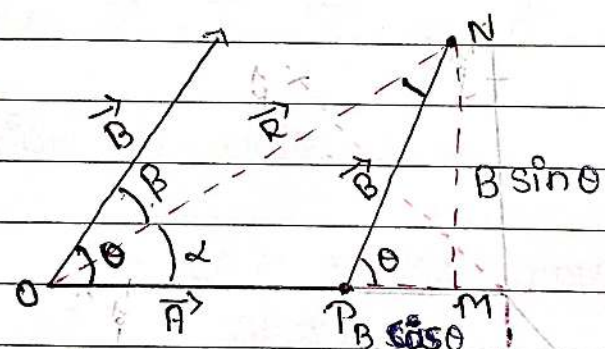 N
B⃗
R⃗
β
B⃗
B sinθ
θ
α
θ
O
A⃗
P
M
B cosθ